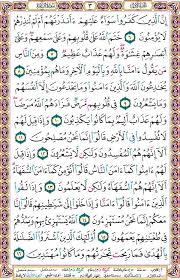 إِنَّ الَّذِينَ كَفَرُوا سَوَاءٌ عَلَيْهِمْ ءَأَنذَرْتَهُمْ أَمْ لَمْ تُنذِرْهُمْ
لَا يُؤْمِنُونَ ٦ خَتَمَ اللَّهُ عَلَىٰ قُلُوبِهِمْ وَعَلَىٰ سَمْعِهِمْ وَعَلَىٰ
أَبْصَٰرِهِمْ غِشَٰوَةٌ وَلَهُمْ عَذَابٌ عَظِيمٌ ٧ وَمِنَ النَّاسِ
مَن يَقُولُ ءَامَنَّا بِاللَّهِ وَبِالْيَوْمِ الْآخِرِ وَمَا هُم بِمُؤْمِنِينَ ٨
يُخَٰدِعُونَ اللَّهَ وَالَّذِينَ ءَامَنُوا وَمَا يَخْدَعُونَ إِلَّا أَنفُسَهُمْ
وَمَا يَشْعُرُونَ ٩ فِي قُلُوبِهِم مَّرَضٌ فَزَادَهُمُ اللَّهُ مَرَضًا
وَلَهُمْ عَذَابٌ أَلِيمٌ بِمَا كَانُوا يَكْذِبُونَ ١٠ وَإِذَا قِيلَ لَهُمْ
لَا تُفْسِدُوا فِي الْأَرْضِ قَالُوا إِنَّمَا نَحْنُ مُصْلِحُونَ ١١
أَلَا إِنَّهُمْ هُمُ الْمُفْسِدُونَ وَلَٰكِن لَّا يَشْعُرُونَ ١٢ وَإِذَا قِيلَ
لَهُمْ ءَامِنُوا كَمَا ءَامَنَ النَّاسُ قَالُوا أَنُؤْمِنُ كَمَا ءَامَنَ السُّفَهَاءُ
أَلَا إِنَّهُمْ هُمُ السُّفَهَاءُ وَلَٰكِن لَّا يَعْلَمُونَ ١٣ وَإِذَا لَقُوا
الَّذِينَ ءَامَنُوا قَالُوا ءَامَنَّا وَإِذَا خَلَوْا إِلَىٰ شَيَٰطِينِهِمْ قَالُوا إِنَّا
مَعَكُمْ إِنَّمَا نَحْنُ مُسْتَهْزِءُونَ ١٤ اللَّهُ يَسْتَهْزِئُ بِهِمْ وَيَمُدُّهُمْ
فِي طُغْيَٰنِهِمْ يَعْمَهُونَ ١٥ أُولَٰئِكَ الَّذِينَ اشْتَرَوُا الضَّلَٰلَةَ
بِالْهُدَىٰ فَمَا رَبِحَت تِّجَٰرَتُهُمْ وَمَا كَانُوا مُهْتَدِينَ ١٦